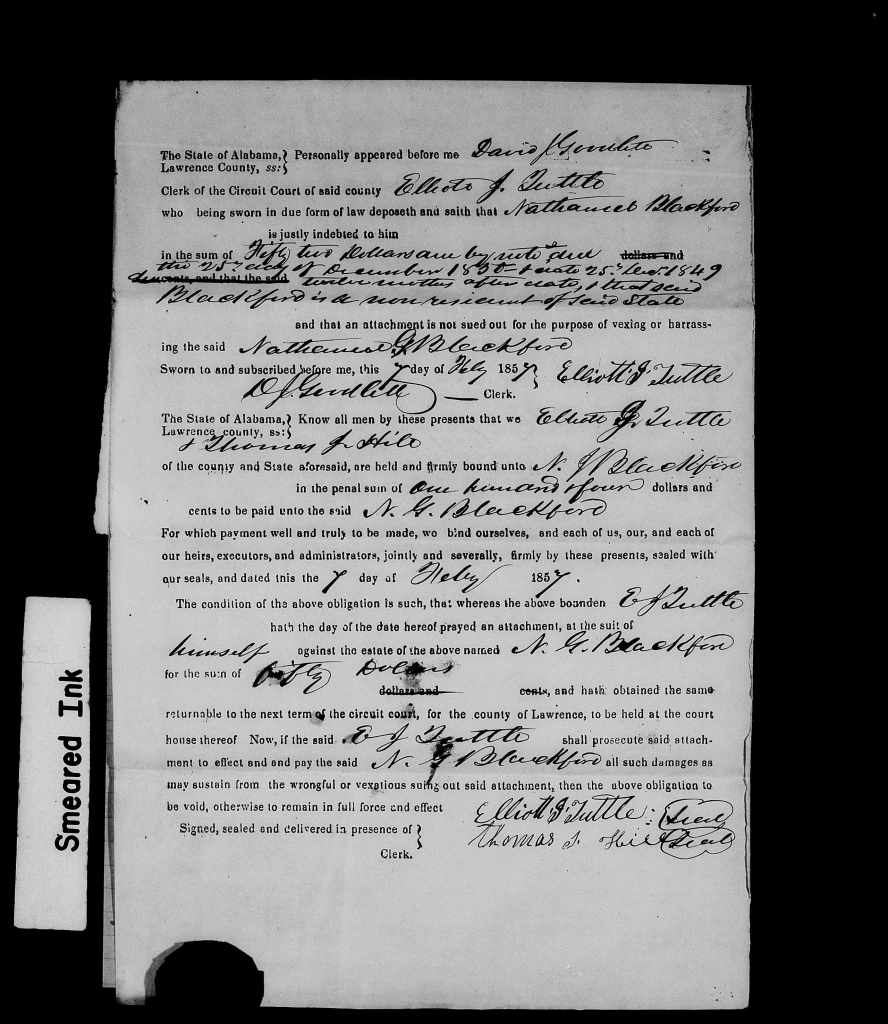 The State of Alabama,} Personally appeared before me David J Goodlett
Lawrence County, ss:}
Clerk of the Circuit Court of said county Elliott J. Tuttle
who being sworn in due form of law deposeth and saith that Nathaniel Blackford
is justly indebted to him
in the sum of Fifty two Dollars due by note due dollars and
the 25th day of December 1850 & date 25th Decr 1849
cents, and that the said twelve months after date, & that said
Blackford is a non resident of said State
and that an attachment is not sued out for the purpose of vexing or harrass-
ing the said Nathaniel G Blackford
Sworn to and subscribed before me, this 7 day of Feby 1857 } Elliott J Tuttle
D J Goodlett Clerk.
The State of Alabama,} Know all men by these presents that we Elliott J. Tuttle
Lawrence county, ss:}
& Thomas J Hill
of the county and State aforesaid, are held and firmly bound unto N. G Blackford
in the penal sum of One hundred & four dollars and
cents to be paid unto the said N. G. Blackford
For which payment well and truly to be made, we bind ourselves, and each of us, our, and each of
our heirs, executors, and administrators, jointly and severally, firmly by these presents, sealed with
our seals, and dated this the 7 day of Feby 1857.
The condition of the above obligation is such, that whereas the above bounden E J Tuttle
hath the day of the date hereof prayed an attachment, at the suit of
himself against the estate of the above named N. G. Blackford
for the sum of fifty Dollars
dollars and cents, and hath obtained the same
returnable to the next term of the circuit court, for the county of Lawrence, to be held at the court
house thereof Now, if the said E J Tuttle shall prosecute said attach-
ment to effect and and pay the said N. G Blackford all such damages as
may sustain from the wrongful or vexatious suing out said attachment, then the above obligation to
be void, otherwise to remain in full force and effect
Elliott J Tuttle (Seal)
Signed, sealed and delivered in presence of }
Thomas J. Hill (Seal)
Clerk.
Smeared Ink